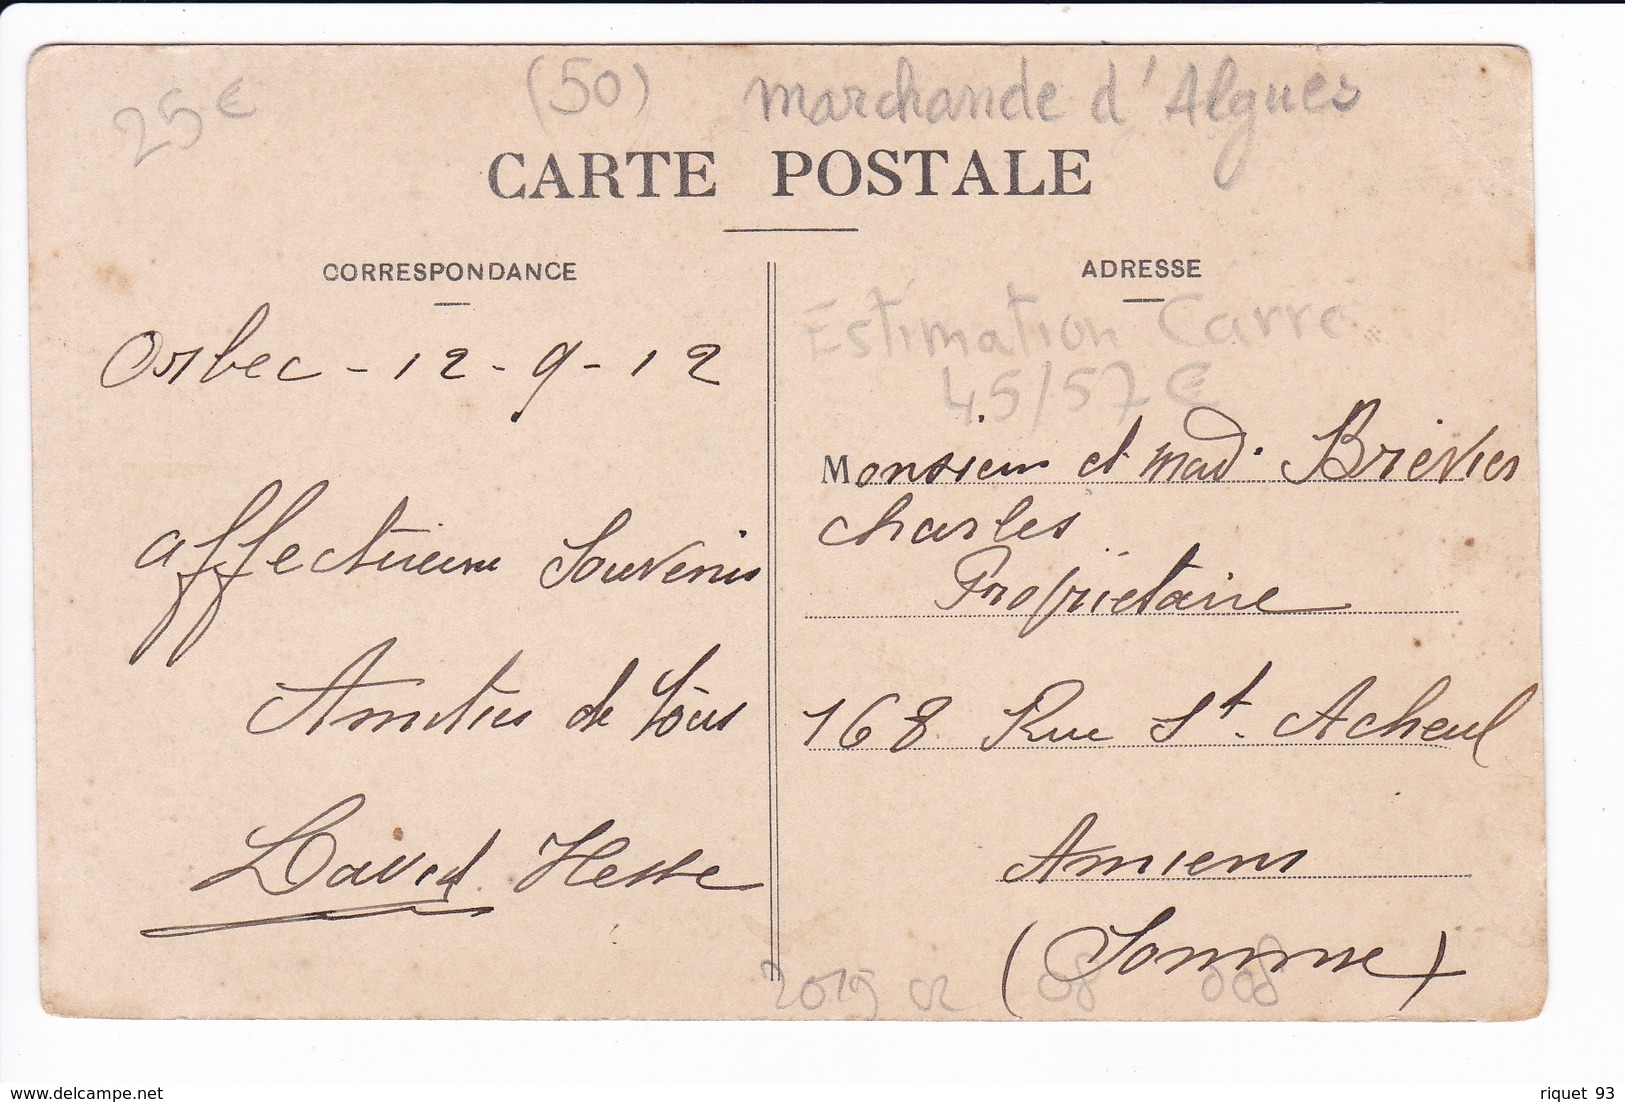 25 €
(50)
marchande d'Algues
CARTE POSTALE
CORRESPONDANCE
Orbec - 12 - 9 - 12
affectueux Souvenirs
Amitiés de tous
David Hesse
ADRESSE
Estimation Carré
45/57 €
Monsieur et Mad. Brévier
Charles
Propriétaire
168 Rue St. Acheul
Amiens
(Somme)
2019 02 08 008
delcampe.net
riquet 93